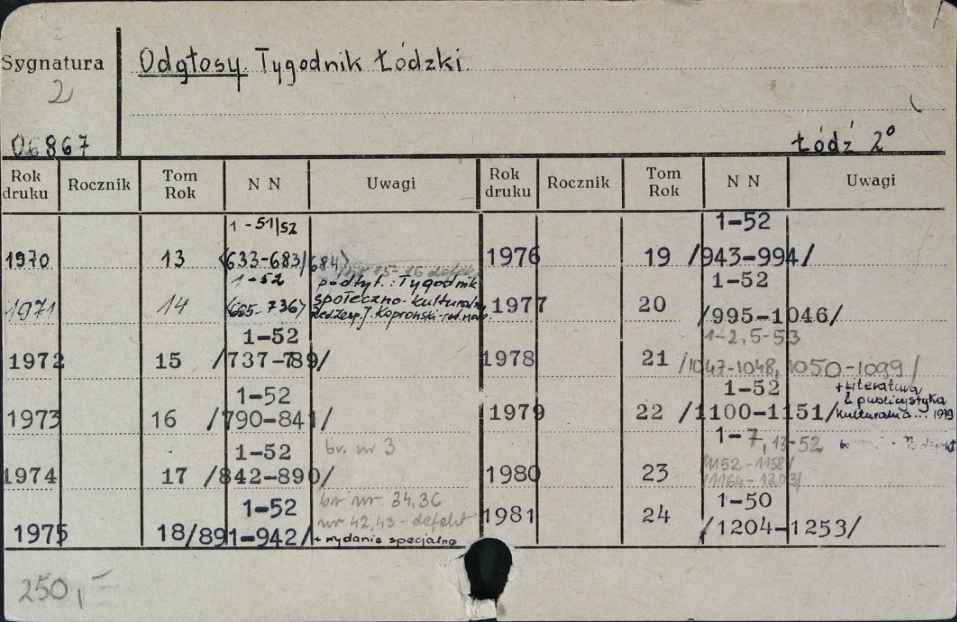 Sygnatura
2
06867
Odgłosy. Tygodnik Łódzki.
Łódź 2°
Rok druku Rocznik Tom Rok N N Uwagi
1970 13 1-51/52 (633-683/684)
1971 14 1-52 (685-736) podtyt.: Tygodnik
społeczno-kulturalny
Red. Zesp. J. Koproński-red. nacz.
1972 15 1-52 /737-789/
1973 16 1-52 /790-841/
1974 17 1-52 /842-890/ br. nr 3
1975 18 1-52 /891-942/ br nr 34,36
nr 42,43-defekt
+ wydanie specjalne
Rok druku Rocznik Tom Rok N N Uwagi
1976 19 1-52 /943-994/
1977 20 1-52 /995-1046/
1978 21 1-2, 5-53 /1047-1048, 1050-1099/
1979 22 1-52 /1100-1151/ + Literatura
i publicystyka
kulturalna... 1979
1980 23 1-7, 13-52 /1152-1158/
/1164-1203/
1981 24 1-50 /1204-1253/
250,-